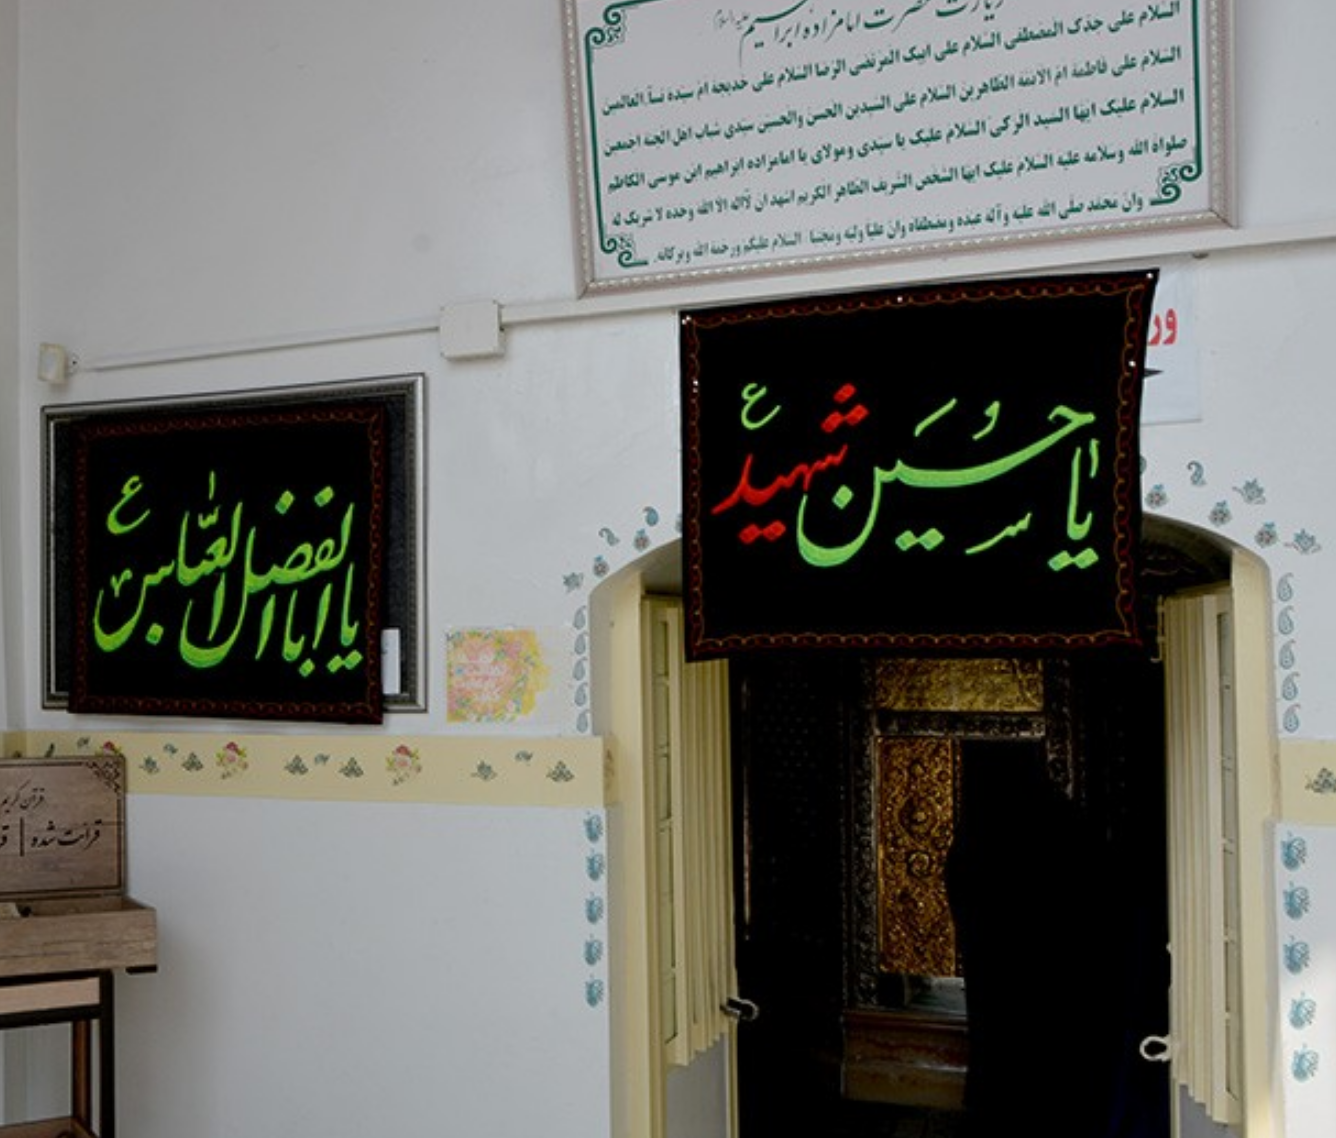 زیارت حضرت امامزاده ابراهیم علیه السلام
السلام علی جدک المصطفی السلام علی ابیک المرتضی الرضا السلام علی خدیجة ام سیدة نسآ العالمین
السلام علی فاطمة ام الائمة الطاهرین السلام علی السیدین الحسن والحسین سیدی شباب اهل الجنة اجمعین
السلام علیک ایها السید الزکی السلام علیک یا سیدی ومولای یا امامزاده ابراهیم ابن موسی الکاظم
صلواة الله وسلامه علیه السلام علیک ایها الشخص الشریف الطاهر الکریم اشهد ان لآاله الا الله وحده لا شریک له
وان محمد صلی الله علیه وآله عبده ومصطفاه وان علیا ولیه ومجتبا السلام علیکم ورحمة الله وبرکاته.
ور
یا حسین شهید ع
یا اباالفضل العباس ع
قرآن کریم
قرائت شده